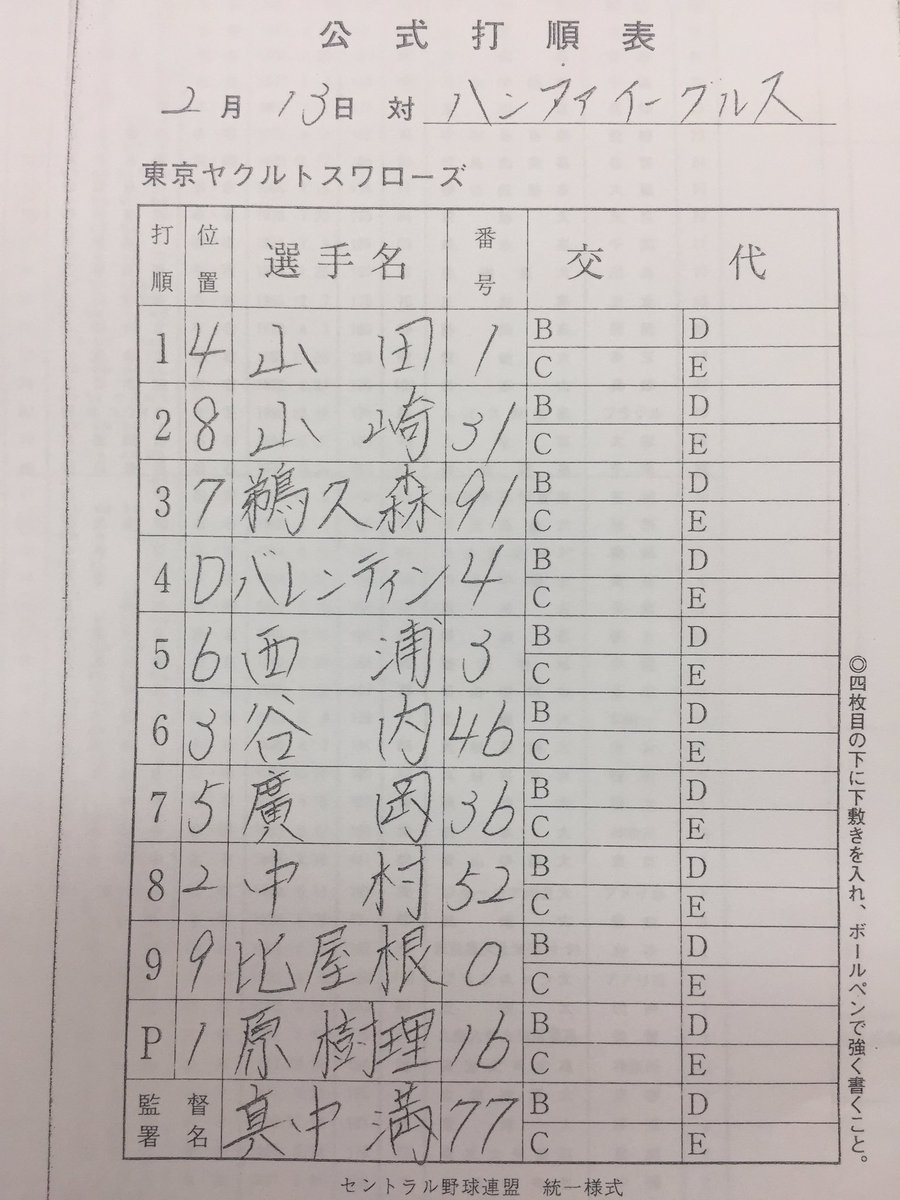 公式打順表
2月13日 対 ハンファイーグルス
東京ヤクルトスワローズ
打順 位置 選手名 番号 交代
1 4 山田 1 B D
C E
2 8 山崎 31 B D
C E
3 7 鵜久森 91 B D
C E
4 D バレンティン 4 B D
C E
5 6 西浦 3 B D
C E
6 3 谷内 46 B D
C E
7 5 廣岡 36 B D
C E
8 2 中村 52 B D
C E
9 9 比屋根 0 B D
C E
P 1 原樹理 16 B D
C E
監督署名 真中満 77 B D
C E
◎四枚目の下に下敷きを入れ、ボールペンで強く書くこと。
セントラル野球連盟 統一様式